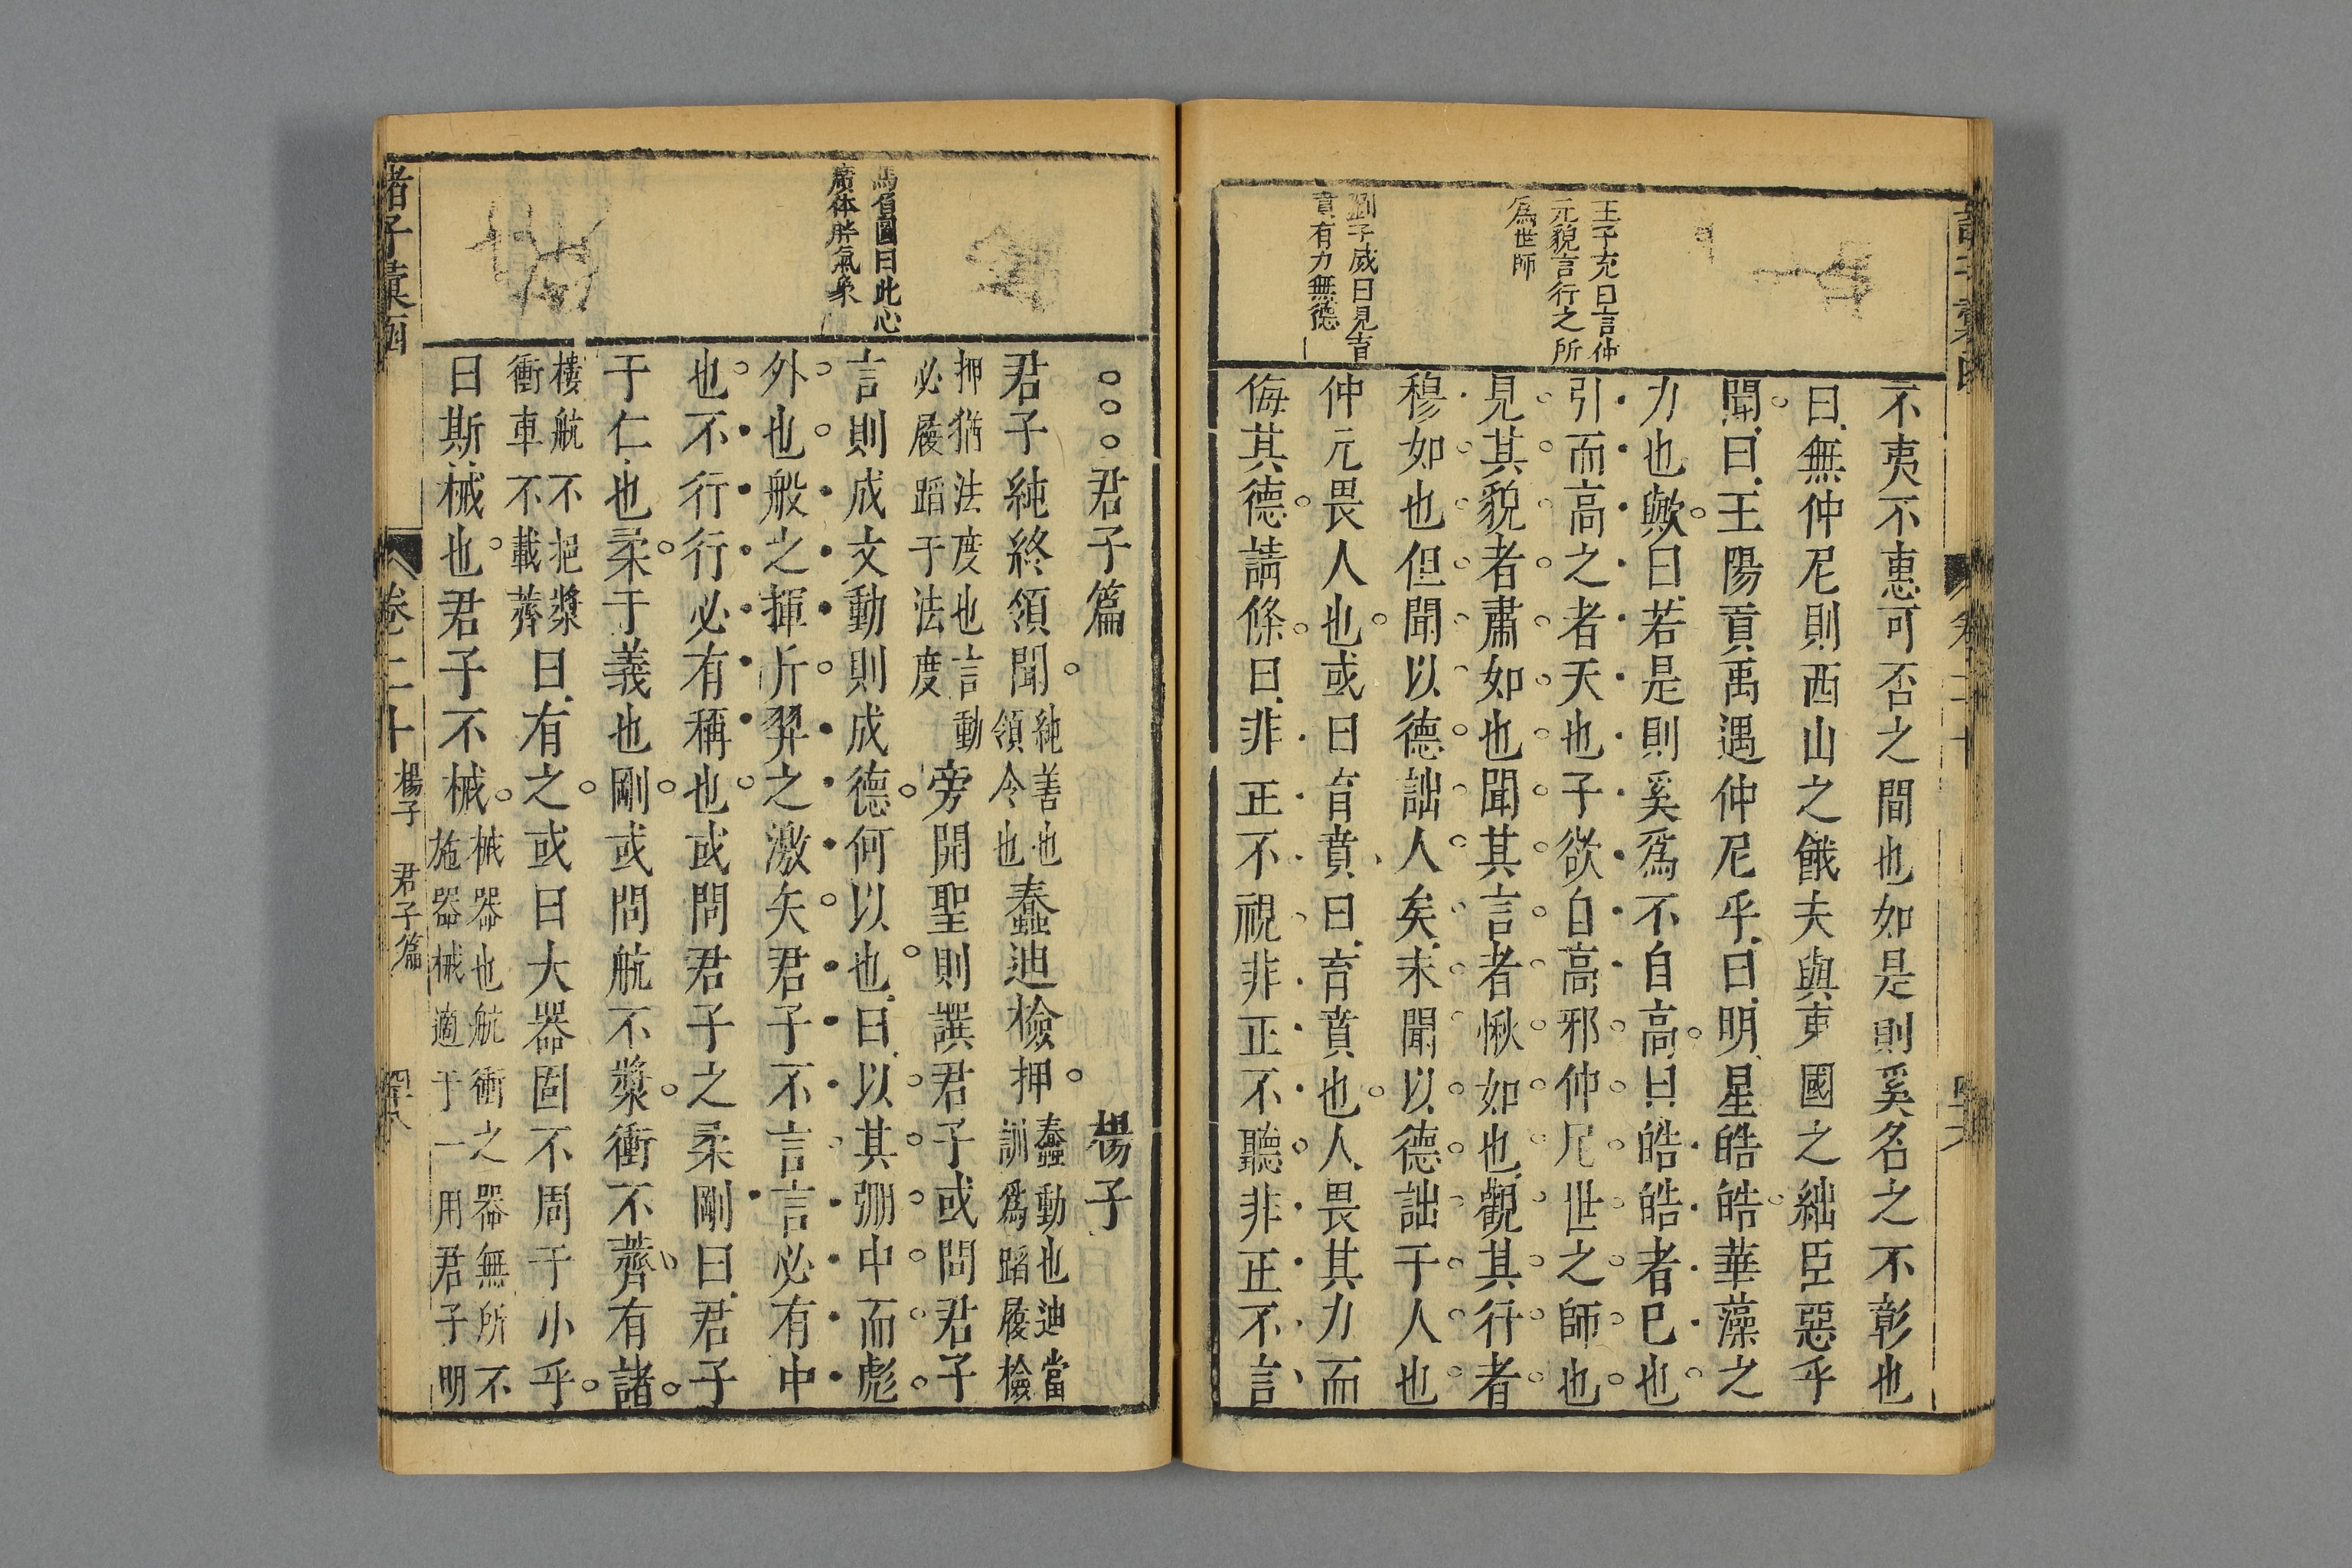 王子充曰言仲
元貌言行之所
爲世師
劉子威曰見育
賁有力無德
不夷不惠可否之間也如是則奚名之不彰也
曰無仲尼則西山之餓夫與東國之絀臣惡乎
聞曰王陽貢禹遇仲尼乎曰明星皓皓華藻之
力也歟曰若是則奚爲不自高曰皓皓者已也
引而高之者天也子欲自高邪仲尼世之師也
見其貌者肅如也聞其言者愀如也觀其行者
穆如也但聞以德詘人矣未聞以德詘于人也
仲元畏人也或曰育賁曰育賁也人畏其力而
侮其德請條曰非正不視非正不聽非正不言
馬伯圖曰此心
廣体胖氣象
君子篇 楊子
君子純終領聞純善也領令也蠢迪檢押蠢動也迪當訓爲蹈履檢
押猶法度也言動必履蹈于法度旁開聖則譔君子或問君子
言則成文動則成德何以也曰以其弸中而彪
外也般之揮斤羿之激矢君子不言言必有中
也不行行必有稱也或問君子之柔剛曰君子
于仁也柔于義也剛或問航不漿衝不薺有諸
樓航不挹漿衝車不載薺曰有之或曰大器固不周于小乎
曰斯械也君子不械械器也航衝之器無所不施器械適于一用君子明
諸子彙函
卷二十
楊子
君子篇